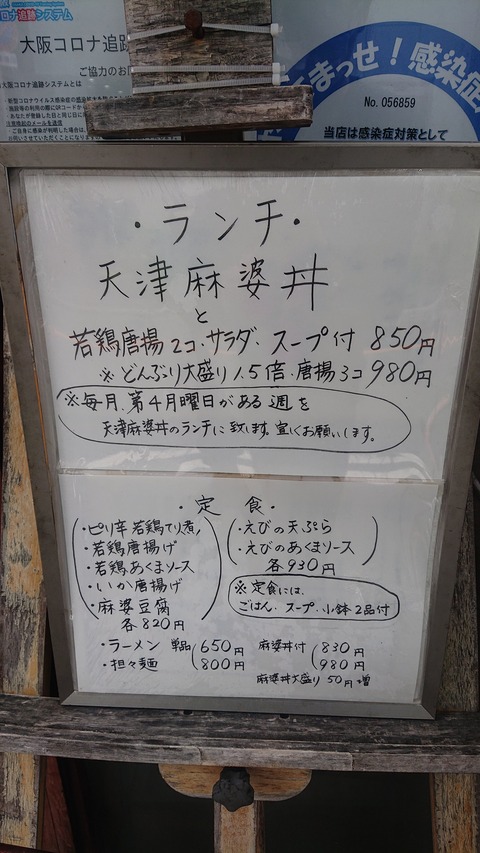 ロナ追跡システム
大阪コロナ追跡
ご協力のお
大阪コロナ追跡システムとは
こまっせ！感染症
No. 056859
当店は感染症対策として
・ランチ・
天津麻婆丼
と
若鶏唐揚2コ・サラダ・スープ付 850円
※どんぶり大盛り1.5倍・唐揚3コ980円
※毎月、第4月曜日がある週を
天津麻婆丼のランチに致します。宜しくお願いします。
・定食・
・ピリ辛若鶏てり煮
・若鶏唐揚げ
・若鶏あくまソース
・いか唐揚げ
・麻婆豆腐
各820円
・えびの天ぷら
・えびのあくまソース
各930円
※定食には、
ごはん、スープ、小鉢2品付
・ラーメン 単品 650円 麻婆丼付 830円
・担々麺 800円 980円
麻婆丼大盛り50円増